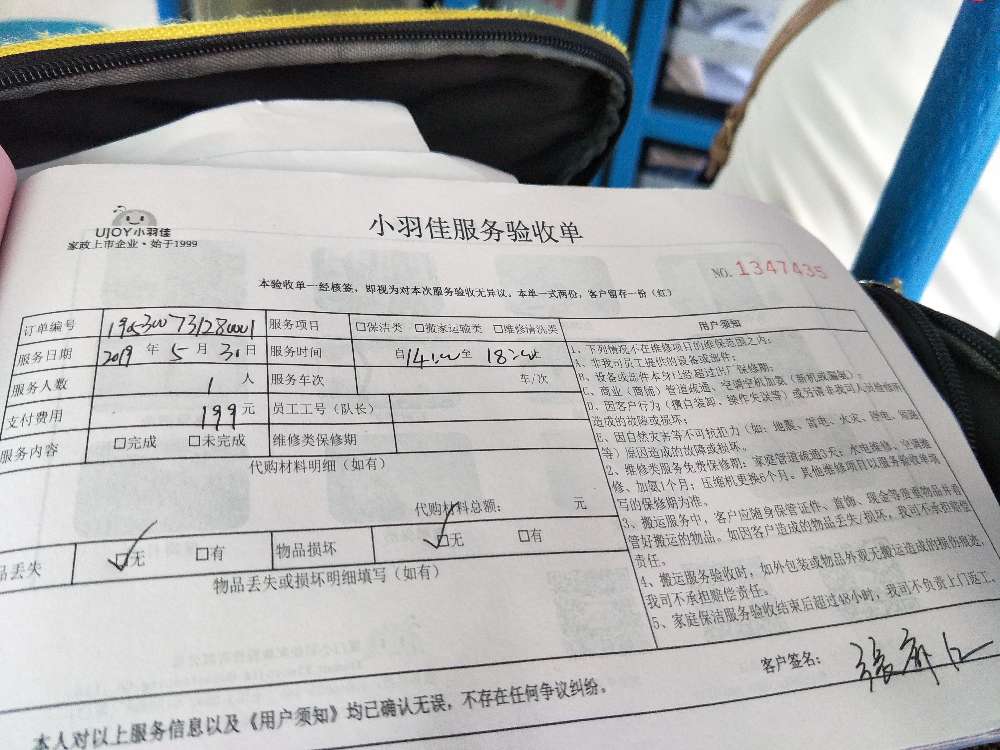 UJOY小羽佳
家政上市企业·始于1999
小羽佳服务验收单
NO. 1347435
本验收单一经核签，即视为对本次服务验收无异议。本单一式两份，客户留存一份（红）
订单编号 服务项目 □保洁类 □搬家运输类 □维修清洗类
服务日期 2019 年 5 月 30 日 服务时间 自14:00至 18:00
服务人数 1 人 服务车次 车/次
支付费用 199元 员工工号（队长）
服务内容 □完成 □未完成 维修类保修期
代购材料明细（如有）
代购材料总额： 元
品丢失 ☑无 □有 物品损坏 ☑无 □有
物品丢失或损坏明细填写（如有）
用户须知
1、下列情况不在维修项目的维保范围之内：
A、非我司员工提供的设备或部件；
B、设备或部件本身已经超过出厂保修期；
C、商业（商铺）管道疏通、空调空机加氨（新机或漏氟）；
D、因客户行为（擅自装卸、操作失误等）或另请非我司人员检修所
造成的故障或损坏；
E、因自然灾害等不可抗拒力（如：地震、雷电、水灾、
等）原因造成的故障或损坏。
2、维修类服务免费保修期：家庭管道疏通3天；水电维修、空调维
修、加氨1个月；压缩机更换6个月。其他维修项目以服务验收单填
写的保修期为准。
3、搬运服务中，客户应随身保管证件、首饰、现金等贵重物品并看
管好搬运的物品。如因客户造成的物品丢失/损坏，我司不承担赔偿
责任。
4、搬运服务验收时，如外包装或物品外观无搬运造成的损伤痕迹，
我司不承担赔偿责任。
5、家庭保洁服务验收结束后超过48小时，我司不负责上门返工。
客户签名：
本人对以上服务信息以及《用户须知》均已确认无误，不存在任何争议纠纷。